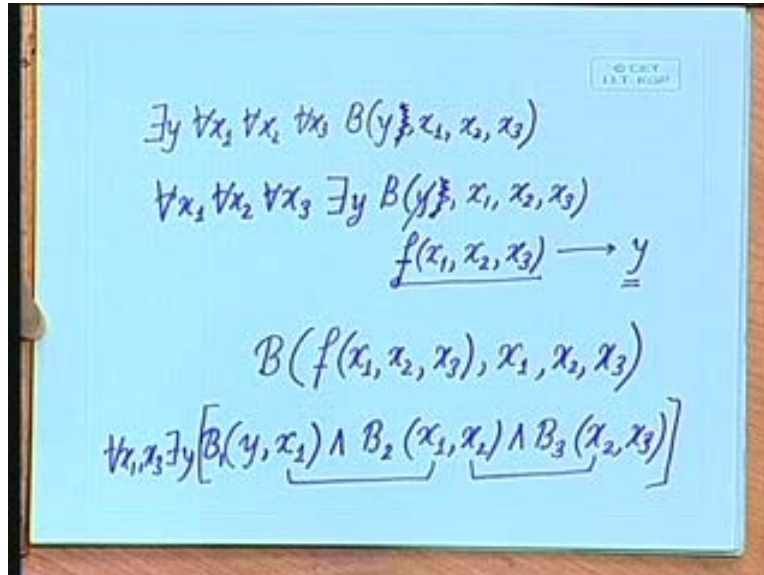 © CET
I.I.T. KGP
∃y ∀x₁ ∀x₂ ∀x₃ B(y, x₁, x₂, x₃)
∀x₁ ∀x₂ ∀x₃ ∃y B(y, x₁, x₂, x₃)
f(x₁, x₂, x₃) ⟶ y
B(f(x₁, x₂, x₃), x₁, x₂, x₃)
∀x₁,x₃ ∃y [B₁(y, x₁) ∧ B₂(x₁, x₂) ∧ B₃(x₂, x₃)]